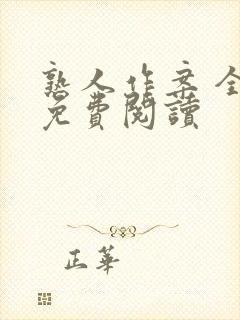 熟人作案全
免費閱讀
正華